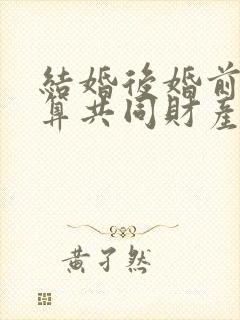 結婚後婚前
算共同財產
黃子然